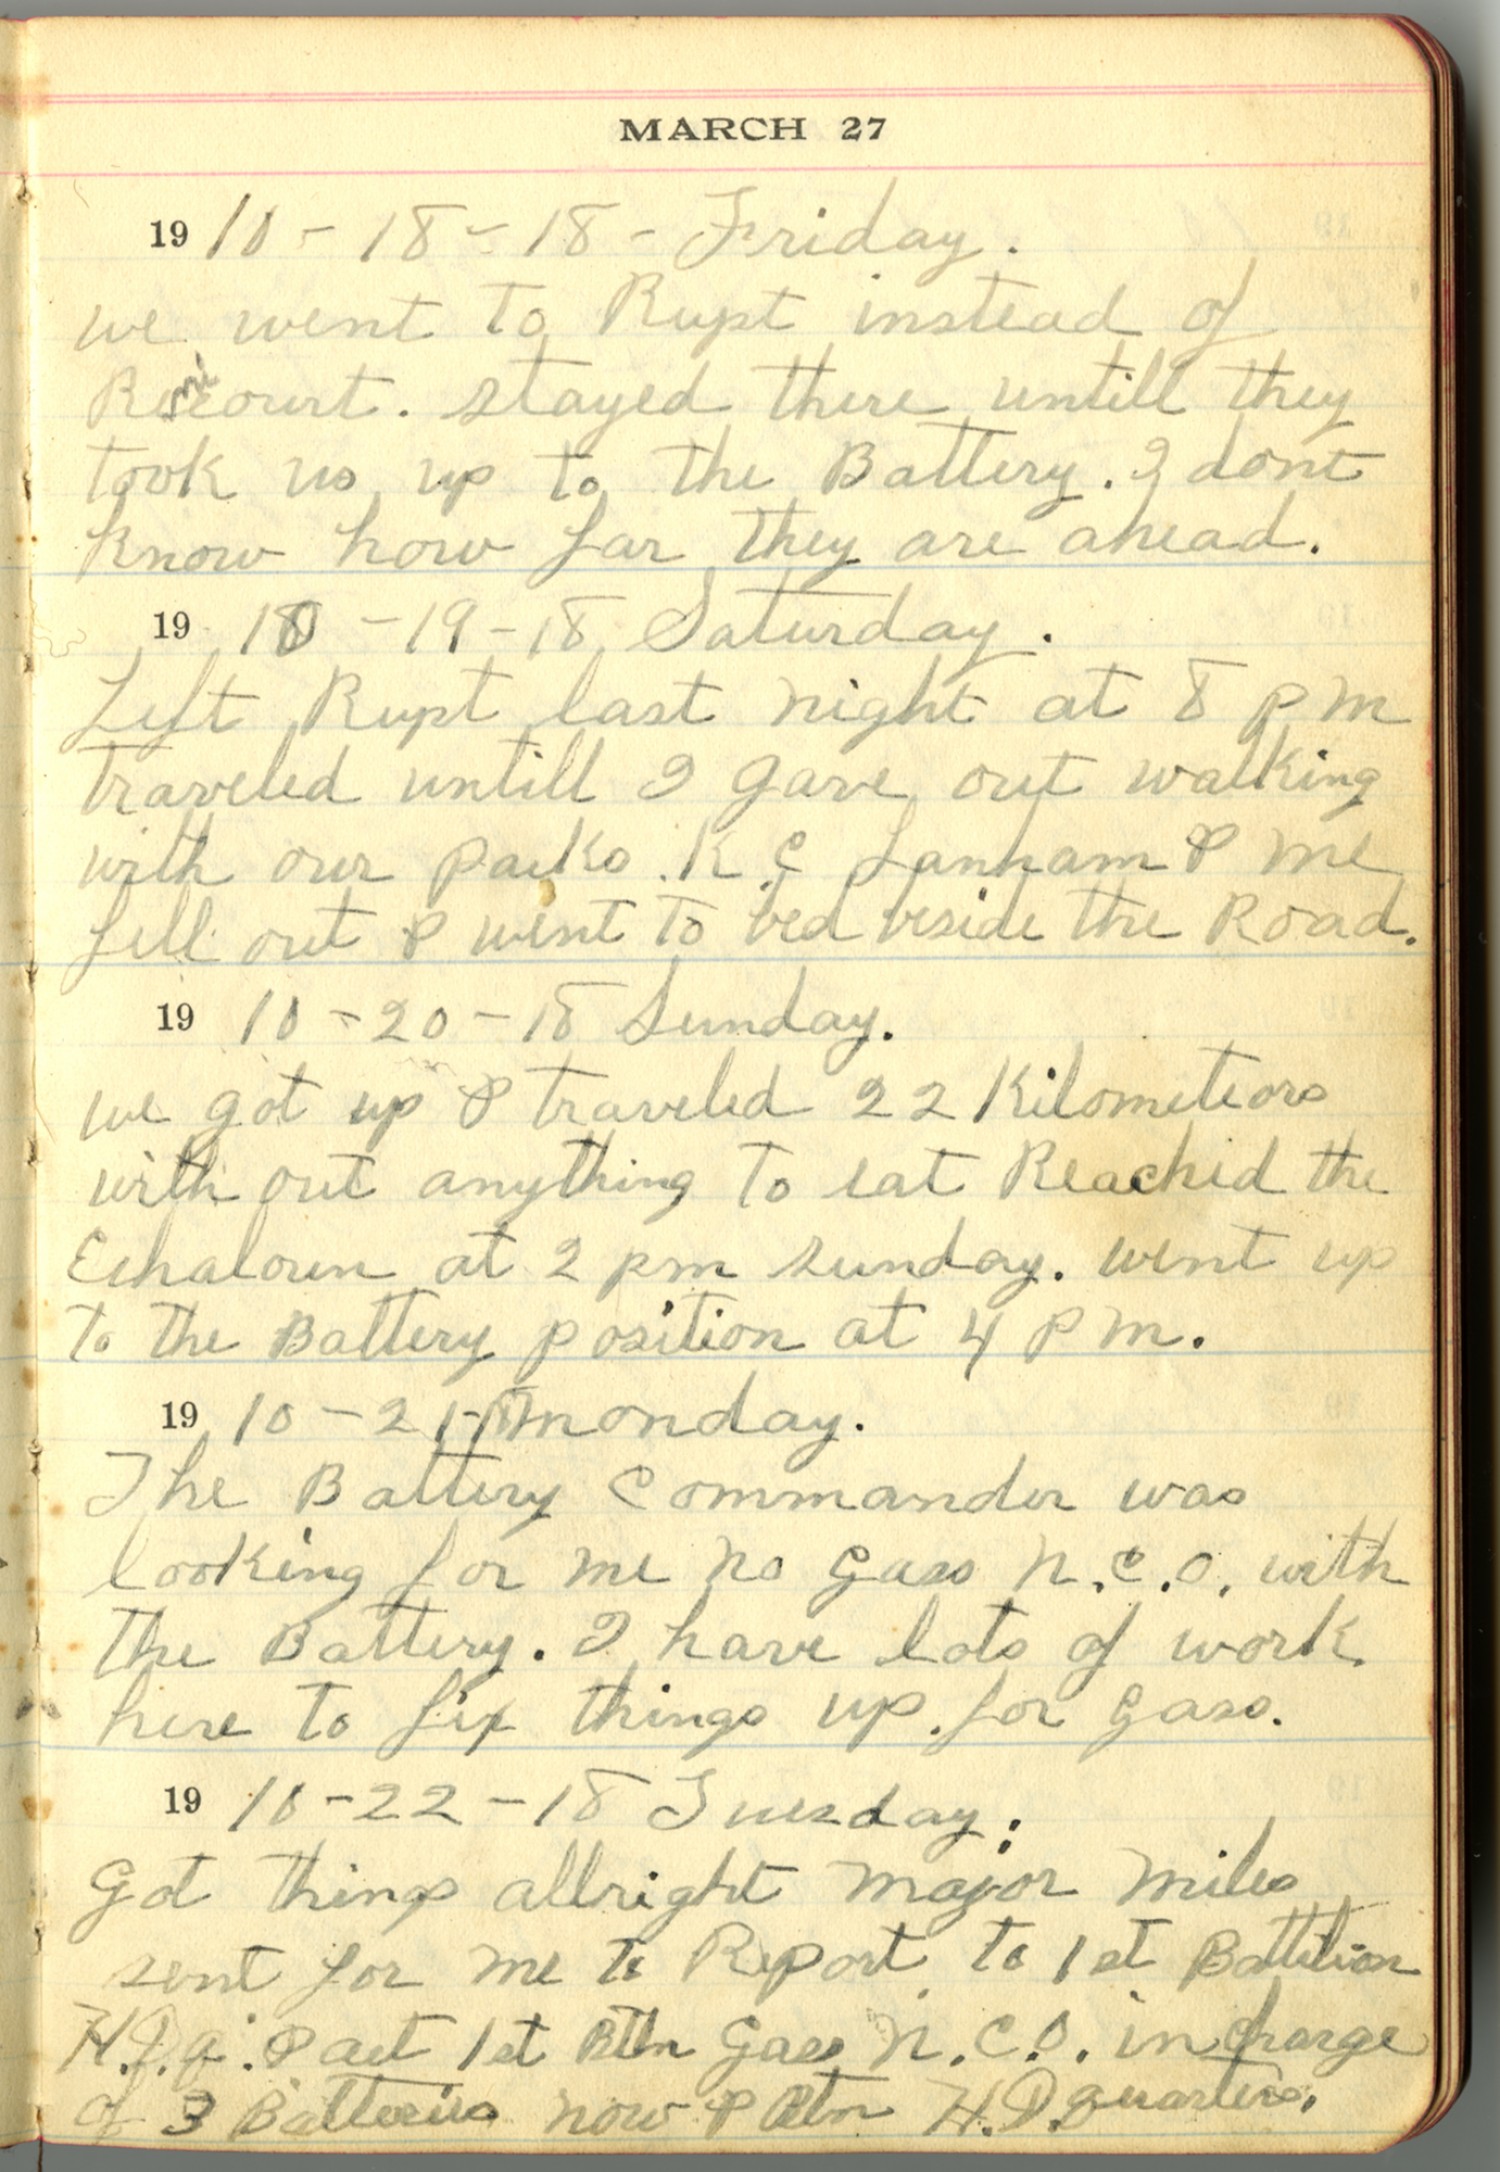 MARCH 27
19 10-18-18- Friday.
we went to Rupt instead of
stayed there untill they
took us up to the Battery. I dont
know how far they are ahead.
19 10-19-18 Saturday.
Left Rupt last night at 8 pm
traveled untill I gave out walking
with our packs. K.C Lanham & me
fell out & went to bed beside the Road.
19 10-20-18 Sunday.
we got up & traveled 22 Kilometeors
with out anything to eat Reached the
Echaloun at 2 pm sunday. went up
to the Battery position at 4 PM.
19 10-21-18 monday.
The Battery Commander was
looking for me no Gass N.C.O. with
the Battery. I have lots of work
here to fix things up for Gass.
19 10-22-18 Tuesday.
Got things allright major miles
sent for me to Report to 1st Battilion
H.D.q. & act 1st Btln Gass N.C.O. in charge
of 3 Batteries now & Btln H.Dquarters.